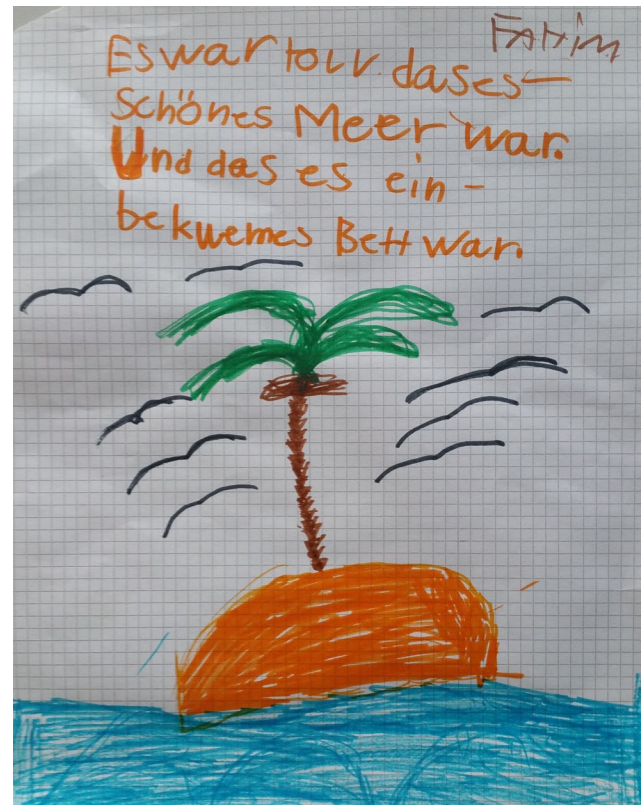 Fatim
Es war toll. das es
schönes Meer war.
Und das es ein-
bekwemes Bett war.